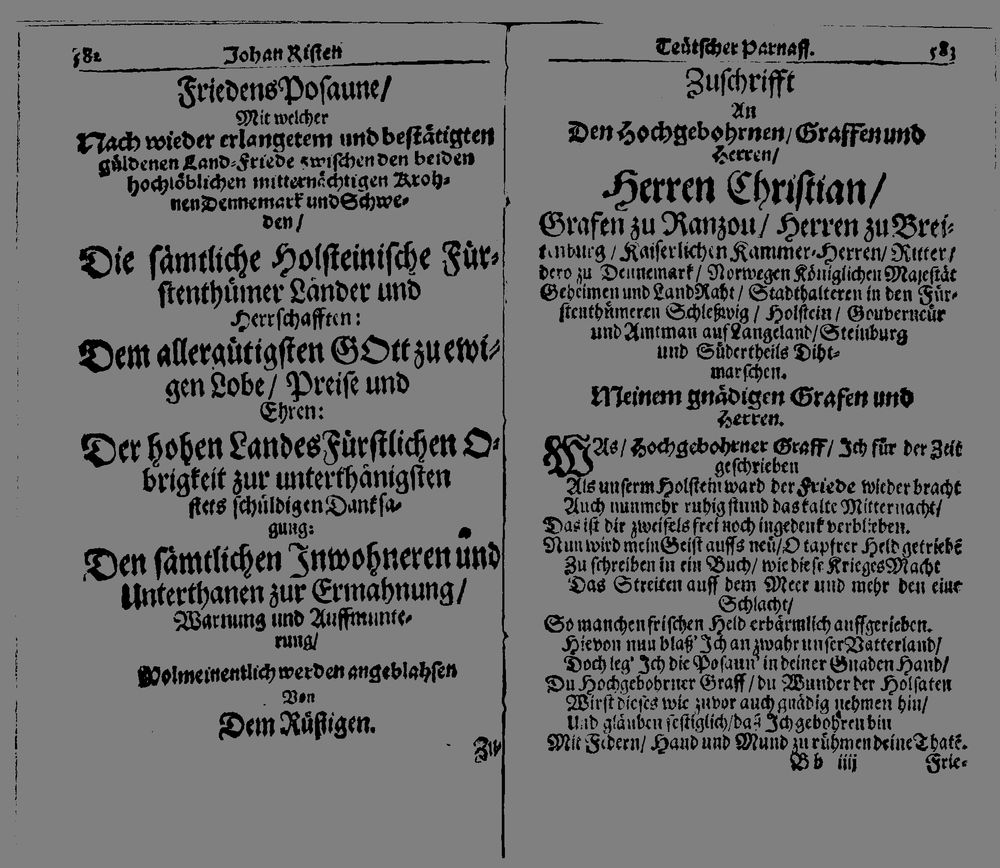 582 Johan Risten
FriedensPosaune/
Mit welcher
Nach wieder erlangetem und bestätigten
güldenen Land-Friede zwischen den beiden
hochlöblichen mitternächtigen Kroh-
nen Dennemark und Schwe-
den/
Die sämtliche Holsteinische Für-
stenthümer Länder und
Herrschafften:
Dem allergütigsten GOtt zu ewi-
gen Lobe/ Preise und
Ehren:
Der hohen LandesFürstlichen O-
brigkeit zur unterthänigsten
stets schüldigen Danksa-
gung:
Den sämtlichen Inwohneren und
Unterthanen zur Ermahnung/
Warnung und Auffmunte-
rung/
Wolmeinentlich werden angeblahsen
Von
Dem Rüstigen.
Zu-
Teütscher Parnass. 583
Zuschrifft
An
Den Hochgebohrnen/ Graffen und
Herren/
Herren Christian/
Grafen zu Ranzou/ Herren zu Brei-
tenburg/ Kaiserlichen Kammer-Herren/ Ritter/
dero zu Dennemark/ Norwegen Königlichen Majestät
Geheimen und LandRaht/ Stadthalteren in den Für-
stenthümeren Schleßwig/ Holstein/ Gouverneür
und Amtman auf Langeland/ Steinburg
und Südertheils Diht-
marschen.
Meinem gnädigen Grafen und
Herren.
WAs/ Hochgebohrner Graff/ Ich für der Zeit
geschrieben
Als unserm Holstein ward der Friede wieder bracht
Auch nunmehr ruhig stund das kalte Mitternacht/
Das ist dir zweifels frei noch ingedenk verblieben.
Nun wird mein Geist auffs neü/ O tapfrer Held getriebẽ
Zu schreiben in ein Buch/ wie diese KriegesMacht
Das Streiten auff dem Meer und mehr den eine
Schlacht/
So manchen frischen Held erbärmlich auffgerieben.
Hievon nun blaß' Ich an zwahr unser Vatterland/
Doch leg' Ich die Posaun' in deiner Gnaden Hand/
Du Hochgebohrner Graff/ du Wunder der Holsaten
Wirst dieses wie zuvor auch gnädig nehmen hin/
Und gläuben festiglich/ daß Ich gebohren bin
Mit Federn/ Hand und Mund zu rühmen deine Thatẽ.
B b iiij Frie-